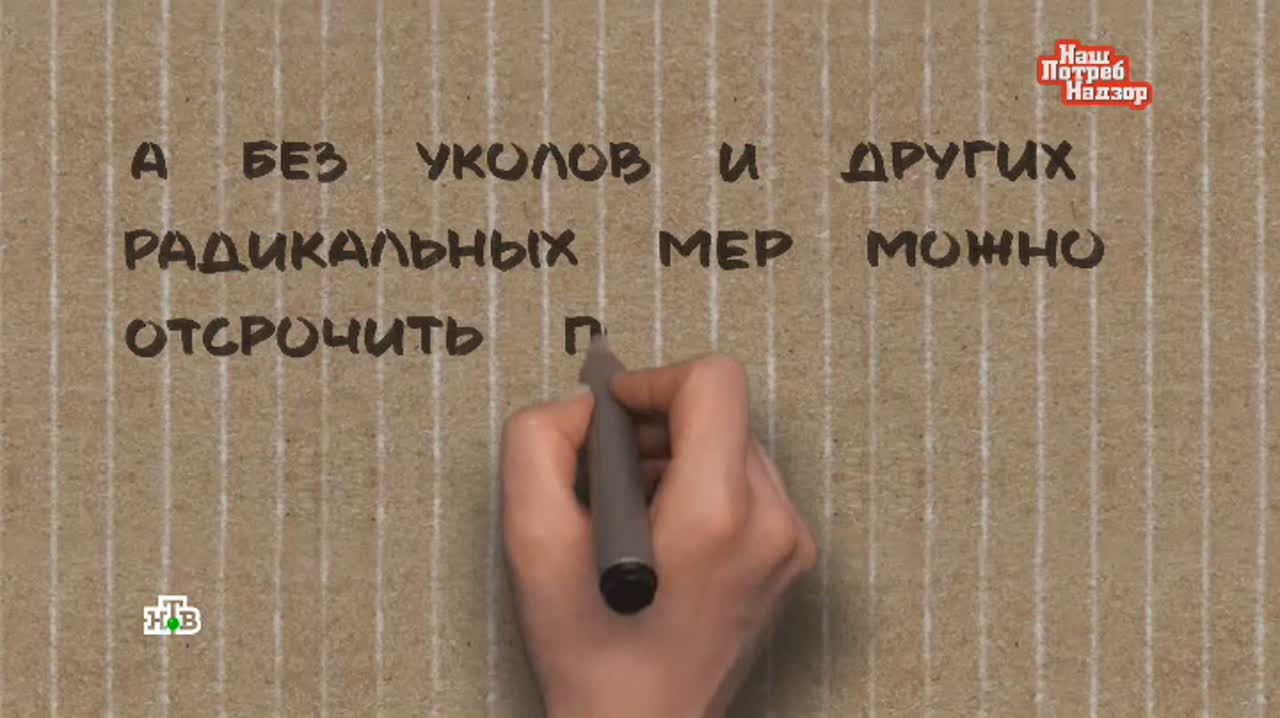 Наш
Потреб
Надзор
А БЕЗ УКОЛОВ И ДРУГИХ
РАДИКАЛЬНЫХ МЕР МОЖНО
ОТСРОЧИТЬ П
НТВ